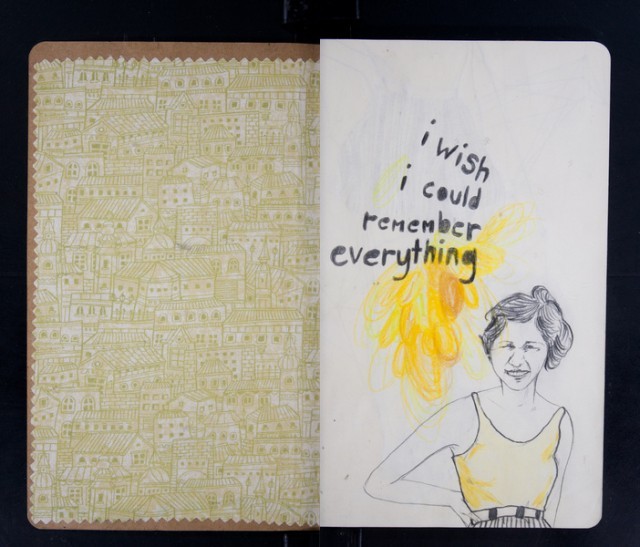 i wish
i could
remember
everything